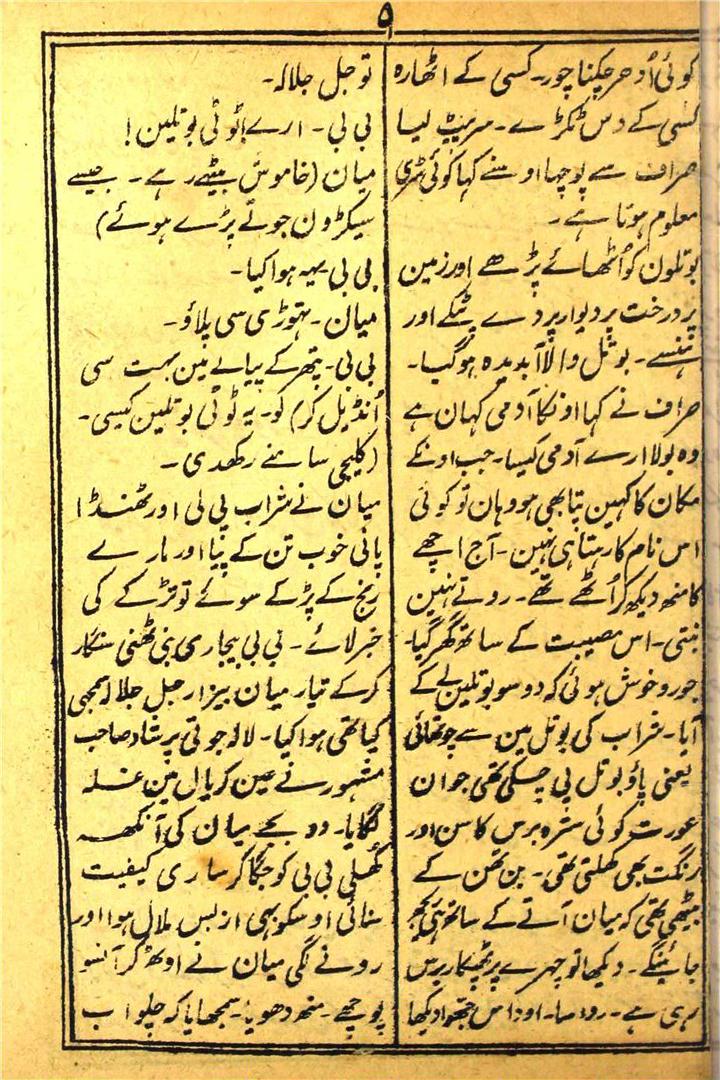 ۵
کوئی اُدھر چکنا چور۔ کسی کے اٹھارہ
کسی کے دس ٹکڑے۔ سرپیٹ لیا
صراف سے پوچھا اوسنے کہا کوئی شہدی
معلوم ہوتا ہے۔
بوتلون کو اُٹھائے پڑھے اور زمین
پر درخت پر دیوار پر دے پٹکے اور
ہنسے۔ بوتل والا آبدیدہ ہوگیا۔
صراف نے کہا اونکا آدمی کہان ہے
وہ بولا ارے آدمی کیسا۔ جب اونکے
مکان کا کہین پتا بھی ہو وہان تو کوئی
اس نام کا رہتا ہی نہین۔ آج اچھے
کا منھ دیکھ کر اُٹھے تھے۔ روتے نہین
بنتی۔ اس مصیبت کے ساتھ گھر گیا۔
جورو خوش ہوئی کہ دو سو بوتلین لے کے
آیا۔ شراب کی بوتل مین سے چوتھائی
یعنی پاؤ بوتل پی چکی تھی جوان
عورت کوئی سترہ برس کا سن اور
رنگت بھی کھلتی تھی۔ بن ٹھن کے
بیٹھی تھی کہ میان آتے کے ساتھ ہی
جائینگے۔ دیکھا تو چہرے پر پھٹکار برس
رہی ہے۔ روندا سا۔ اوداس جو دیکھا
تو جل جلالہ۔
بی بی۔ ارے! ٹوٹی بوتلین!
میان (خاموش بیٹھے رہے۔ جیسے
سیکڑون جوتے پڑے ہوئے)
بی بی یہہ ہوا کیا۔
میان۔ تہوڑی سی پلاؤ۔
بی بی۔ پتھر کے پیالے مین بہت سی
اُنڈیل کر) لو۔ یہ ٹوٹی بوتلین کیسی۔
(کلیجی سامنے رکھدی۔
میان نے شراب پی لی اور ٹھنڈا
پانی خوب تن کے پیا اور مارے
رنج کے پڑکے سوئے تو تڑکے کی
خبر لائے۔ بی بی بیچاری بنی ٹھنی سنگار
کرکے تیار میان بیزار جل جلالہ سمجھی
کیا تھی ہوا کیا۔ لالہ جوتی پرشاد صاحب
مشہور نے عین کریال مین غلہ
لگایا۔ دو بجے میان کی آنکھہ
کھلی بی بی کو جگا کر ساری کیفیت
سنائی اوسکو بھی ازبس ملال ہوا اور
رونے لگی میان نے اوٹھ کر آنسو
پوچھے۔ منھ دھویا۔ سمجھایا کہ چلو اب